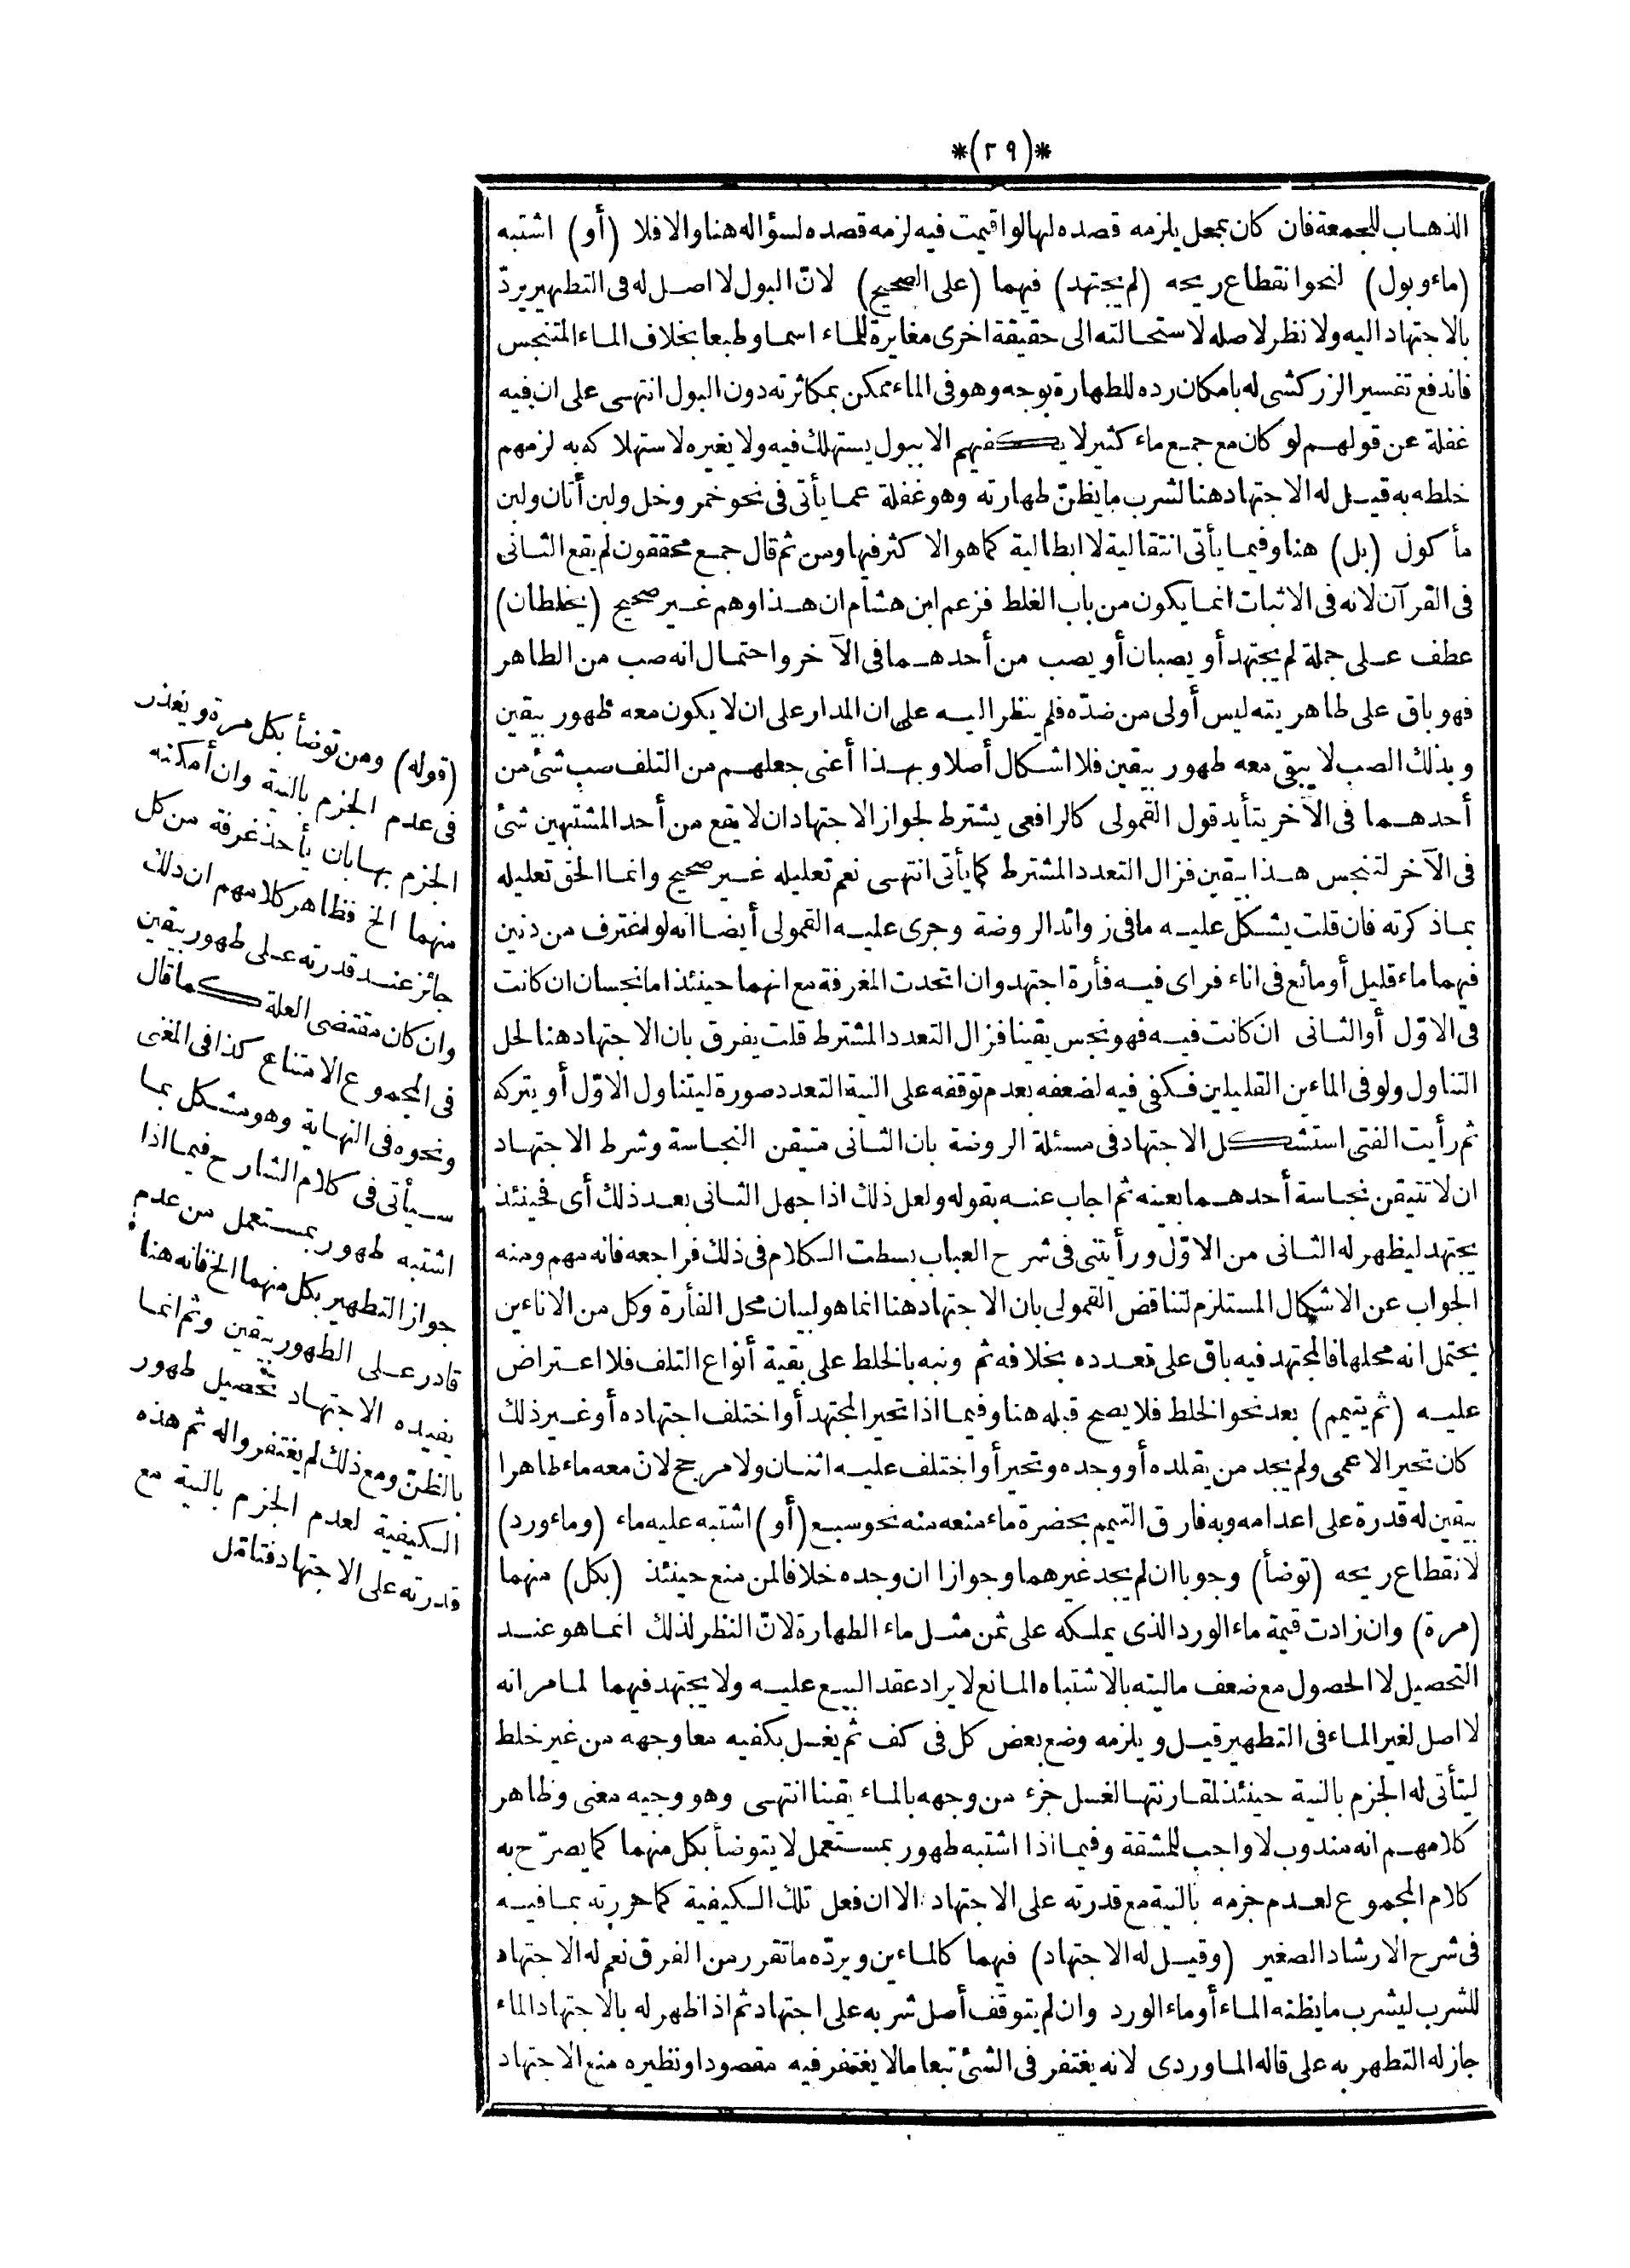 *(٢٩)*
الذهاب للجمعة فان كان بمحل يلزمه قصده لها لو اقيمت فيه لزمه قصده لسؤاله هنا والا فلا (أو) اشتبه
(ماء وبول) لنحو انقطاع ريحه (لم يجتهد) فيهما (على الصحيح) لانّ البول لا اصل له فى التطهير يردّ
بالاجتهاد اليه ولا نظر لاصله لاستحالته الى حقيقة اخرى مغايرة للماء اسما وطبعا بخلاف الماء المتنجس
فاندفع تفسير الزركشى له بامكان رده للطهارة بوجه وهو فى الماء ممكن بمكاثرته دون البول انتهى على ان فيه
غفلة عن قولهم لو كان مع جمع ماء كثير لا يكفيهم الا ببول يستهلك فيه ولا يغيره لاستهلاكه به لزمهم
خلطه به قيل له الاجتهاد هنا لشرب ما يظنّ طهارته وهو غفلة عما يأتى فى نحو خمر وخل ولبن أتان ولبن
مأكول (بل) هنا وفيما يأتى انتقالية لا ابطالية كما هو الاكثر فيها ومن ثم قال جمع محققون لم يقع الثانى
فى القرآن لانه فى الاثبات انما يكون من باب الغلط فزعم ابن هشام ان هذا وهم غير صحيح (يخلطان)
عطف على جملة لم يجتهد أو يصبان أو يصب من أحدهما فى الآخر واحتمال انه صب من الطاهر
فهو باق على طاهريته ليس أولى من ضدّه فلم ينظر اليه على ان المدار على ان لا يكون معه طهور بيقين
وبذلك الصب لا يبقى معه طهور بيقين فلا اشكال أصلا وبهذا أعنى جعلهم من التلف صب شئ من
أحدهما فى الآخر يتأيد قول القمولى كالرافعى يشترط لجواز الاجتهاد ان لا يقع من أحد المشتبهين شئ
فى الآخر لتنجس هذا بيقين فزال التعدد المشترط كما يأتى انتهى نعم تعليله غير صحيح وانما الحق تعليله
بما ذكرته فان قلت يشكل عليه ما فى زوائد الروضة وجرى عليه القمولى أيضا انه لو اغترف من دنين
فيهما ماء قليل أو مائع فى اناء فراى فيه فأرة اجتهد وان اتحدت المغرفة مع انهما حينئذ اما نجسان ان كانت
فى الاوّل أو الثانى ان كانت فيه فهو نجس يقينا فزال التعدد المشترط قلت يفرق بان الاجتهاد هنا لحل
التناول ولو فى الماءين القليلين فكفى فيه لضعفه بعدم توقفه على النية التعدد صورة ليتناول الاوّل أو يتركه
ثم رأيت الفتى استشكل الاجتهاد فى مسئلة الروضة بان الثانى متيقن النجاسة وشرط الاجتهاد
ان لا تتيقن نجاسة أحدهما بعينه ثم اجاب عنه بقوله ولعل ذلك اذا جهل الثانى بعد ذلك أى فحينئذ
يجتهد ليظهر له الثانى من الاوّل ورأيتنى فى شرح العباب بسطت الكلام فى ذلك فراجعه فانه مهم ومنه
الجواب عن الاشكال المستلزم لتناقض القمولى بان الاجتهاد هنا انما هو لبيان محل الفأرة وكل من الاناءين
يحتمل انه محلها فالمجتهد فيه باق على تعدده بخلافه ثم ونبه بالخلط على بقية أنواع التلف فلا اعتراض
عليه (ثم يتيمم) بعد نحو الخلط فلا يصح قبله هنا وفيما اذا تحير المجتهد أو اختلف اجتهاده أو غير ذلك
كان تحير الاعمى ولم يجد من يقلده أو وجده وتحير أو اختلف عليه اثنان ولا مرجح لانّ معه ماء طاهرا
بيقين له قدرة على اعدامه وبه فارق التيمم بحضرة ماء منعه منه نحو سبع (أو) اشتبه عليه ماء (وماء ورد)
لانقطاع ريحه (توضأ) وجوبا ان لم يجد غيرهما وجوازا ان وجده خلافا لمن منع حينئذ (بكل) منهما
(مرة) وان زادت قيمة ماء الورد الذى يملكه على ثمن مثل ماء الطهارة لانّ النظر لذلك انما هو عند
التحصيل لا الحصول مع ضعف ماليته بالاشتباه المانع لايراد عقد البيع عليه ولا يجتهد فيهما لما مر انه
لا اصل لغير الماء فى التطهير قيل ويلزمه وضع بعض كل فى كف ثم يغسل بكفيه معا وجهه من غير خلط
ليتأتى له الجزم بالنية حينئذ لمقارنتها لغسل جزء من وجهه بالماء يقينا انتهى وهو وجيه معنى وظاهر
كلامهم انه مندوب لا واجب للمشقة وفيما اذا اشتبه طهور بمستعمل لا يتوضأ بكل منهما كما يصرّح به
كلام المجموع لعدم جزمه بالنية مع قدرته على الاجتهاد الا ان فعل تلك الكيفية كما حررته بما فيه
فى شرح الارشاد الصغير (وقيل له الاجتهاد) فيهما كالماءين ويردّه ما تقرر من الفرق نعم له الاجتهاد
للشرب ليشرب ما يظنه الماء أو ماء الورد وان لم يتوقف أصل شربه على اجتهاد ثم اذا ظهر له بالاجتهاد الماء
جاز له التطهر به على قاله الماوردى لانه يغتفر فى الشئ تبعا ما لا يغتفر فيه مقصودا ونظيره منع الاجتهاد
(قوله) ومن توضأ بكل مرة ويغذر
فى عدم الجزم بالنية وان أمكنه
الجزم بها بان يأخذ غرفة من كل
منهما الخ فظاهر كلامهم ان ذلك
جائز عند قدرته على طهور بيقين
وان كان مقتضى العلة كما قال
فى المجموع الامتناع كذا فى المغنى
ونحوه فى النهاية وهو مشكل بما
سيأتى فى كلام الشارح فيما اذا
اشتبه طهور بمستعمل من عدم
جواز التطهير بكل منهما الخ فانه هنا
قادر على الطهور بيقين وثم انما
يفيده الاجتهاد تحصيل طهور
بالظنّ ومع ذلك لم يغتفروا له ثم هذه
الكيفية لعدم الجزم بالنية مع
قدرته على الاجتهاد فتأمّل